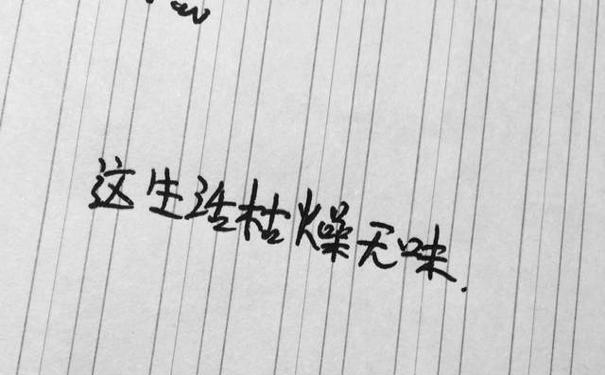 这生活枯燥无味.